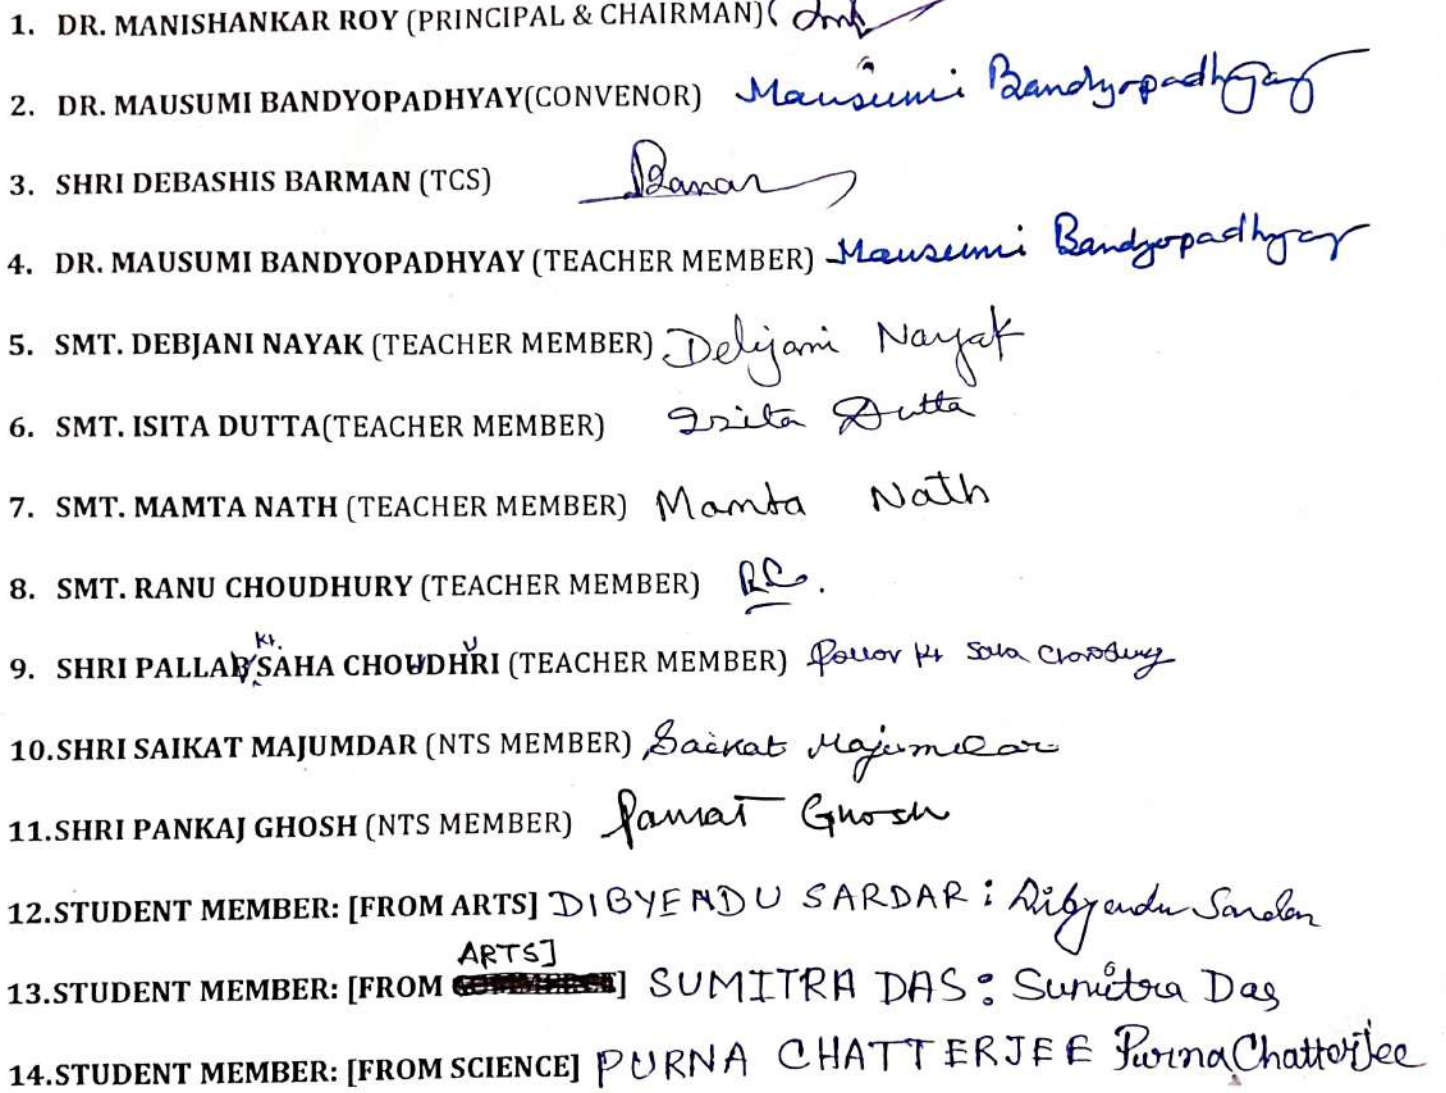 1. DR. MANISHANKAR ROY (PRINCIPAL & CHAIRMAN)
2. DR. MAUSUMI BANDYOPADHYAY(CONVENOR) Mausumi Bandyopadhyay
3. SHRI DEBASHIS BARMAN (TCS)
4. DR. MAUSUMI BANDYOPADHYAY (TEACHER MEMBER) Mausumi Bandyopadhyay
5. SMT. DEBJANI NAYAK (TEACHER MEMBER) Debjani Nayak
6. SMT. ISITA DUTTA(TEACHER MEMBER) Isita Dutta
7. SMT. MAMTA NATH (TEACHER MEMBER) Mamta Nath
8. SMT. RANU CHOUDHURY (TEACHER MEMBER) RC.
Kr.
9. SHRI PALLAB SAHA CHOUDHURI (TEACHER MEMBER) Pallav Kr Saha Chowdhury
10.SHRI SAIKAT MAJUMDAR (NTS MEMBER) Saikat Majumdar
11.SHRI PANKAJ GHOSH (NTS MEMBER) Ghosh
12.STUDENT MEMBER: [FROM ARTS] DIBYENDU SARDAR : Dibyendu Sardar
ARTS]
13.STUDENT MEMBER: [FROM ] SUMITRA DAS : Sumitra Das
14.STUDENT MEMBER: [FROM SCIENCE] PURNA CHATTERJEE Purna Chatterjee